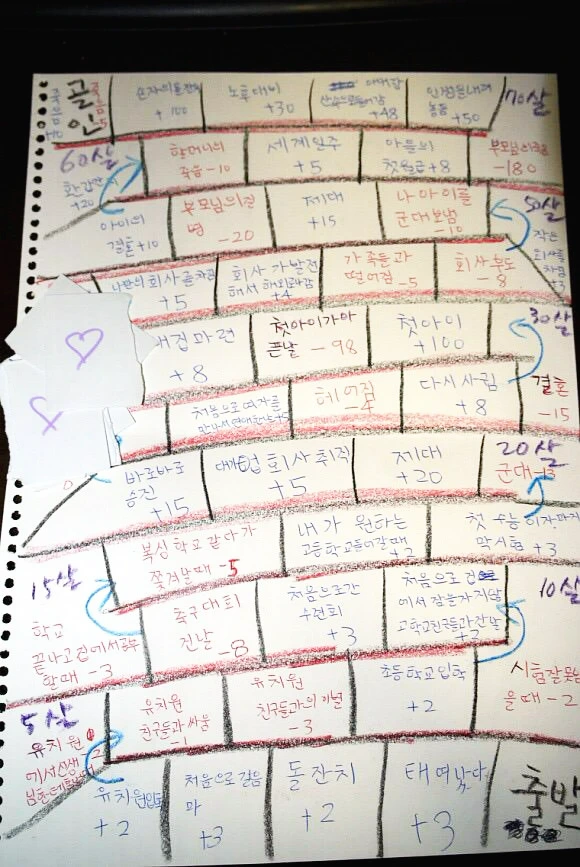 골인
죽음 -5
손자의 돌잔치
+100
노후대비
+30
+48
+50
70살
60살
환갑잔치
+20
할머니의
죽음 -10
세계일주
+5
아들의
첫월급 +8
-180
아이의
결혼 +10
부모님의
-20
제대
+15
나 아이를
군대 보냄
-10
50살
작은
회사를
차림
+3
나만의 회사를 차림
+5
회사가 발전
해서
+4
가족들과
떨어짐 -5
회사 부도
-8
30살
마련
+8
첫아이가 아
픈날 -98
첫아이
+100
처음으로 여자를
헤어짐
-4
다시 사귐
+8
결혼
-15
바로바로
승진
+15
대기업 회사 취직
+5
제대
+20
20살
군대
복싱 학교 같다가
쫓겨날때 -5
내가 원하는
고등학교 들어갈때
+2
첫 수능이자 마지
막 시험 +3
15살
학교
끝나고 집에서 공부
할때 -3
축구 대회
진날
-8
처음으로 간
수련회
+3
처음으로 집
에서 잠을 자지 않
고 학교친구들과 간 날
+3
10살
5살
유치원
에서 선생
유치원
친구들과 싸움
-1
유치원
친구들과의 이별
-3
초등학교 입학
+2
시험 잘못봤
을때 -2
유치원 입학
+2
처음으로 걸음
마
+3
돌잔치
+2
태여났다
+3
출발